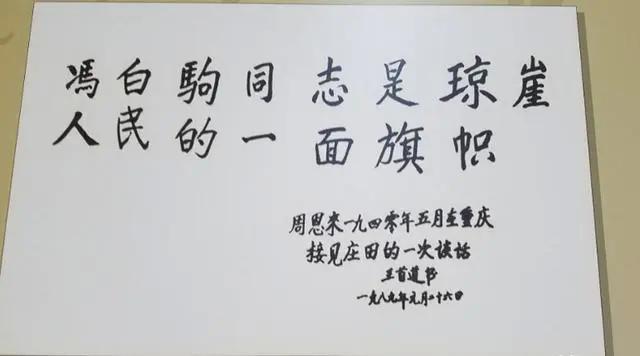 馮白駒同志是琼崖
人民的一面旗帜
周恩来一九四零年五月在重庆
接见庄田的一次谈话
王首道书
一九八九年元月二十六日